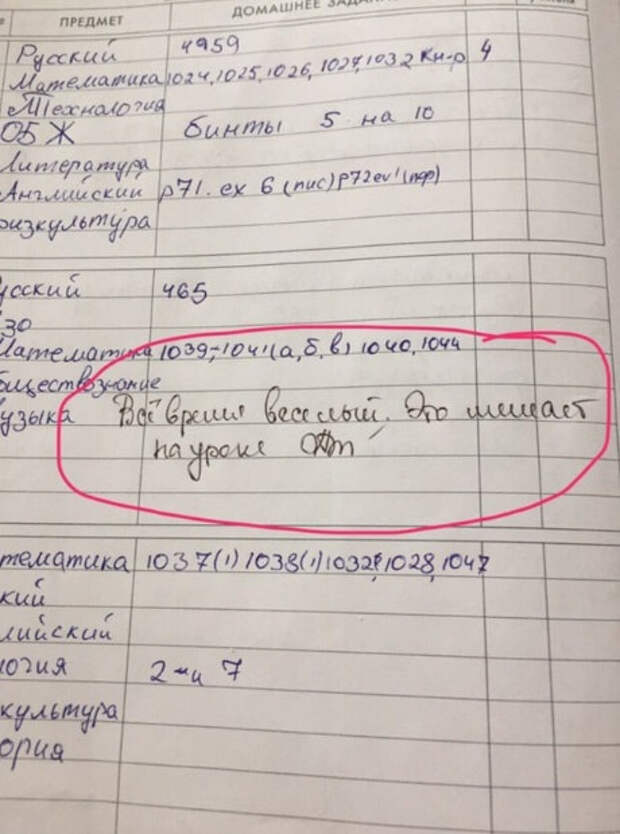 ПРЕДМЕТ ДОМАШНЕЕ
Русский 4959
Математика 1024, 1025, 1026, 1027, 1032 Кн-р 4
Технология
ОБЖ бинты 5 на 10
Литература
Английский p71. ex 6 (пис) p72 ex1 (пер)
физкультура
усский 465
изо
Математика 1039, 1041 (а, б, в) 1040, 1044
бществознание
узыка Всё время веселый. Это мешает
на уроке
тематика 1037 (1) 1038 (1) 1032, 1028, 1047
кий
лийский
логия 2 7
культура
ория